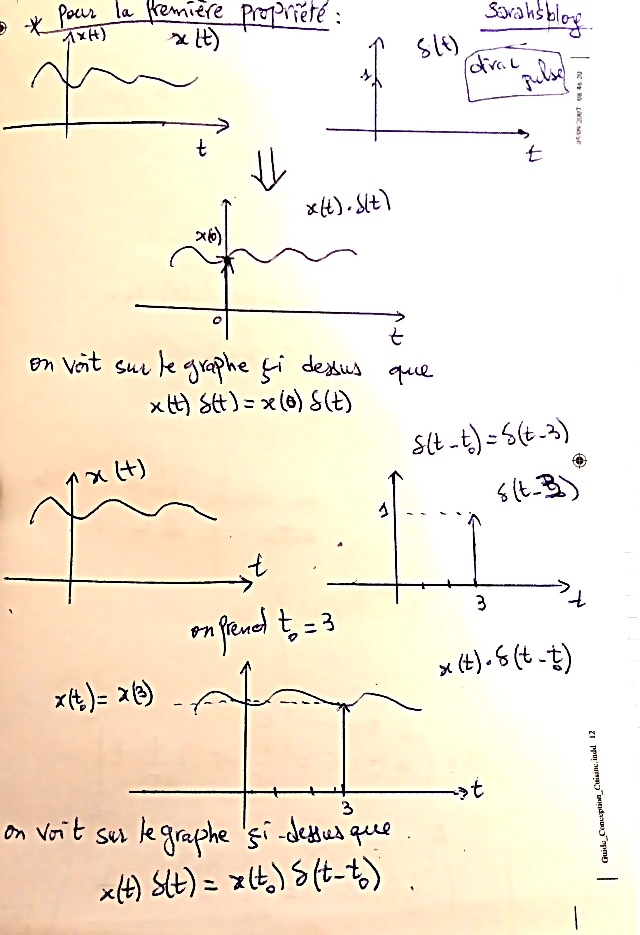 * Pour la première propriété :
Sarahsblog
x(t)
x(t)
t
1
δ(t)
dirac
pulse
t
05/09/2007 08:46:20
⇓
x(t).δ(t)
x(0)
0
t
on voit sur le graphe çi dessus que
x(t) δ(t) = x(0) δ(t)
δ(t-t₀) = δ(t-3)
x(t)
t
1
δ(t-3)
3
t
on prend t₀ = 3
x(t).δ(t-t₀)
x(t₀) = x(3)
3
t
on voit sur le graphe çi-dessus que.
x(t) δ(t) = x(t₀) δ(t-t₀).
Guide_Conception_Cuisine.indd 12